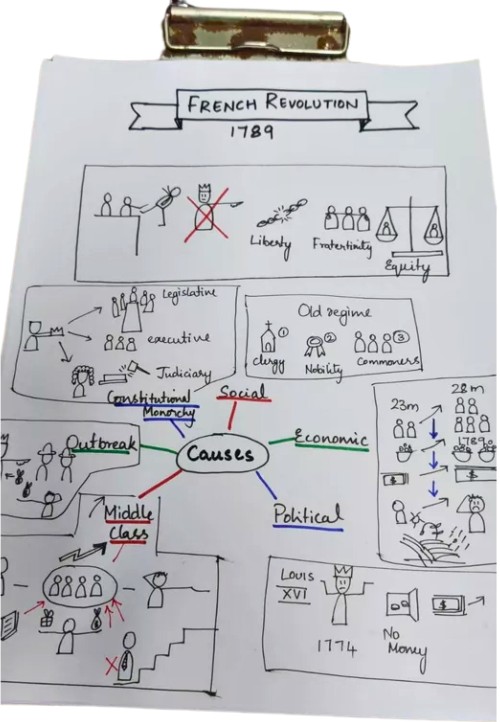 FRENCH REVOLUTION
1789
Liberty
Fratertinity
Equity
Legislative
executive
Judiciary
Old regime
1
2
3
Clergy
Nobility
Commoners
Constitutional
Monarchy
Social
Outbreak
Causes
Economic
Middle
Class
Political
23m
28m
1789
$
$
Louis
XVI
1774
No
Money
$